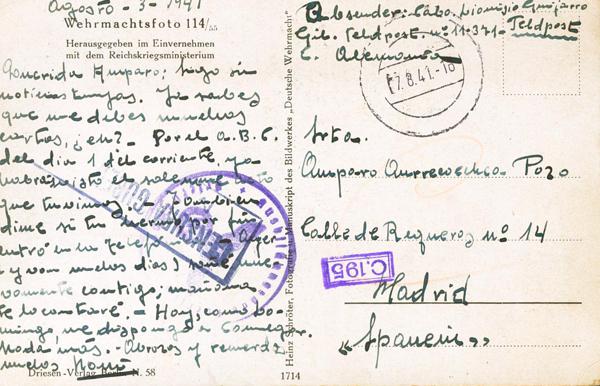 Agosto - 3 - 1941
Wehrmachtsfoto 114/55
Herausgegeben im Einvernehmen
mit dem Reichskriegsministerium
Querida Amparo: Sigo sin
noticias tuyas. Ya sabes
que me debes muchas
cartas, ¿eh? - Por el A.B.C.
del dia 1 del corriente, ya
habrás visto el solemne acto
que tuvimos. - Tambien
dime si tu por fin
entró en la Telefonica. - Ayer
(y van muchos dias) soñé nue-
vamente contigo; mañana
te lo contaré. - Hoy, como do-
mingo, me dispongo a comulgar.
Nada más. - Abrazos y recuerdos
muchos
Driesen-Verlag Berlin N. 58
Heinz Schröter, Fotograf u. Manuskript des Bildwerkes „Deutsche Wehrmacht"
1714
Absender: Cabo. Dionisio Guijarro
Feldpost nº 11-371 - Feldpost
Alemania
17.8.41.-18
Srta.
Amparo Pozo
Calle de Regueros nº 14
C.195
Madrid
"Spanein"